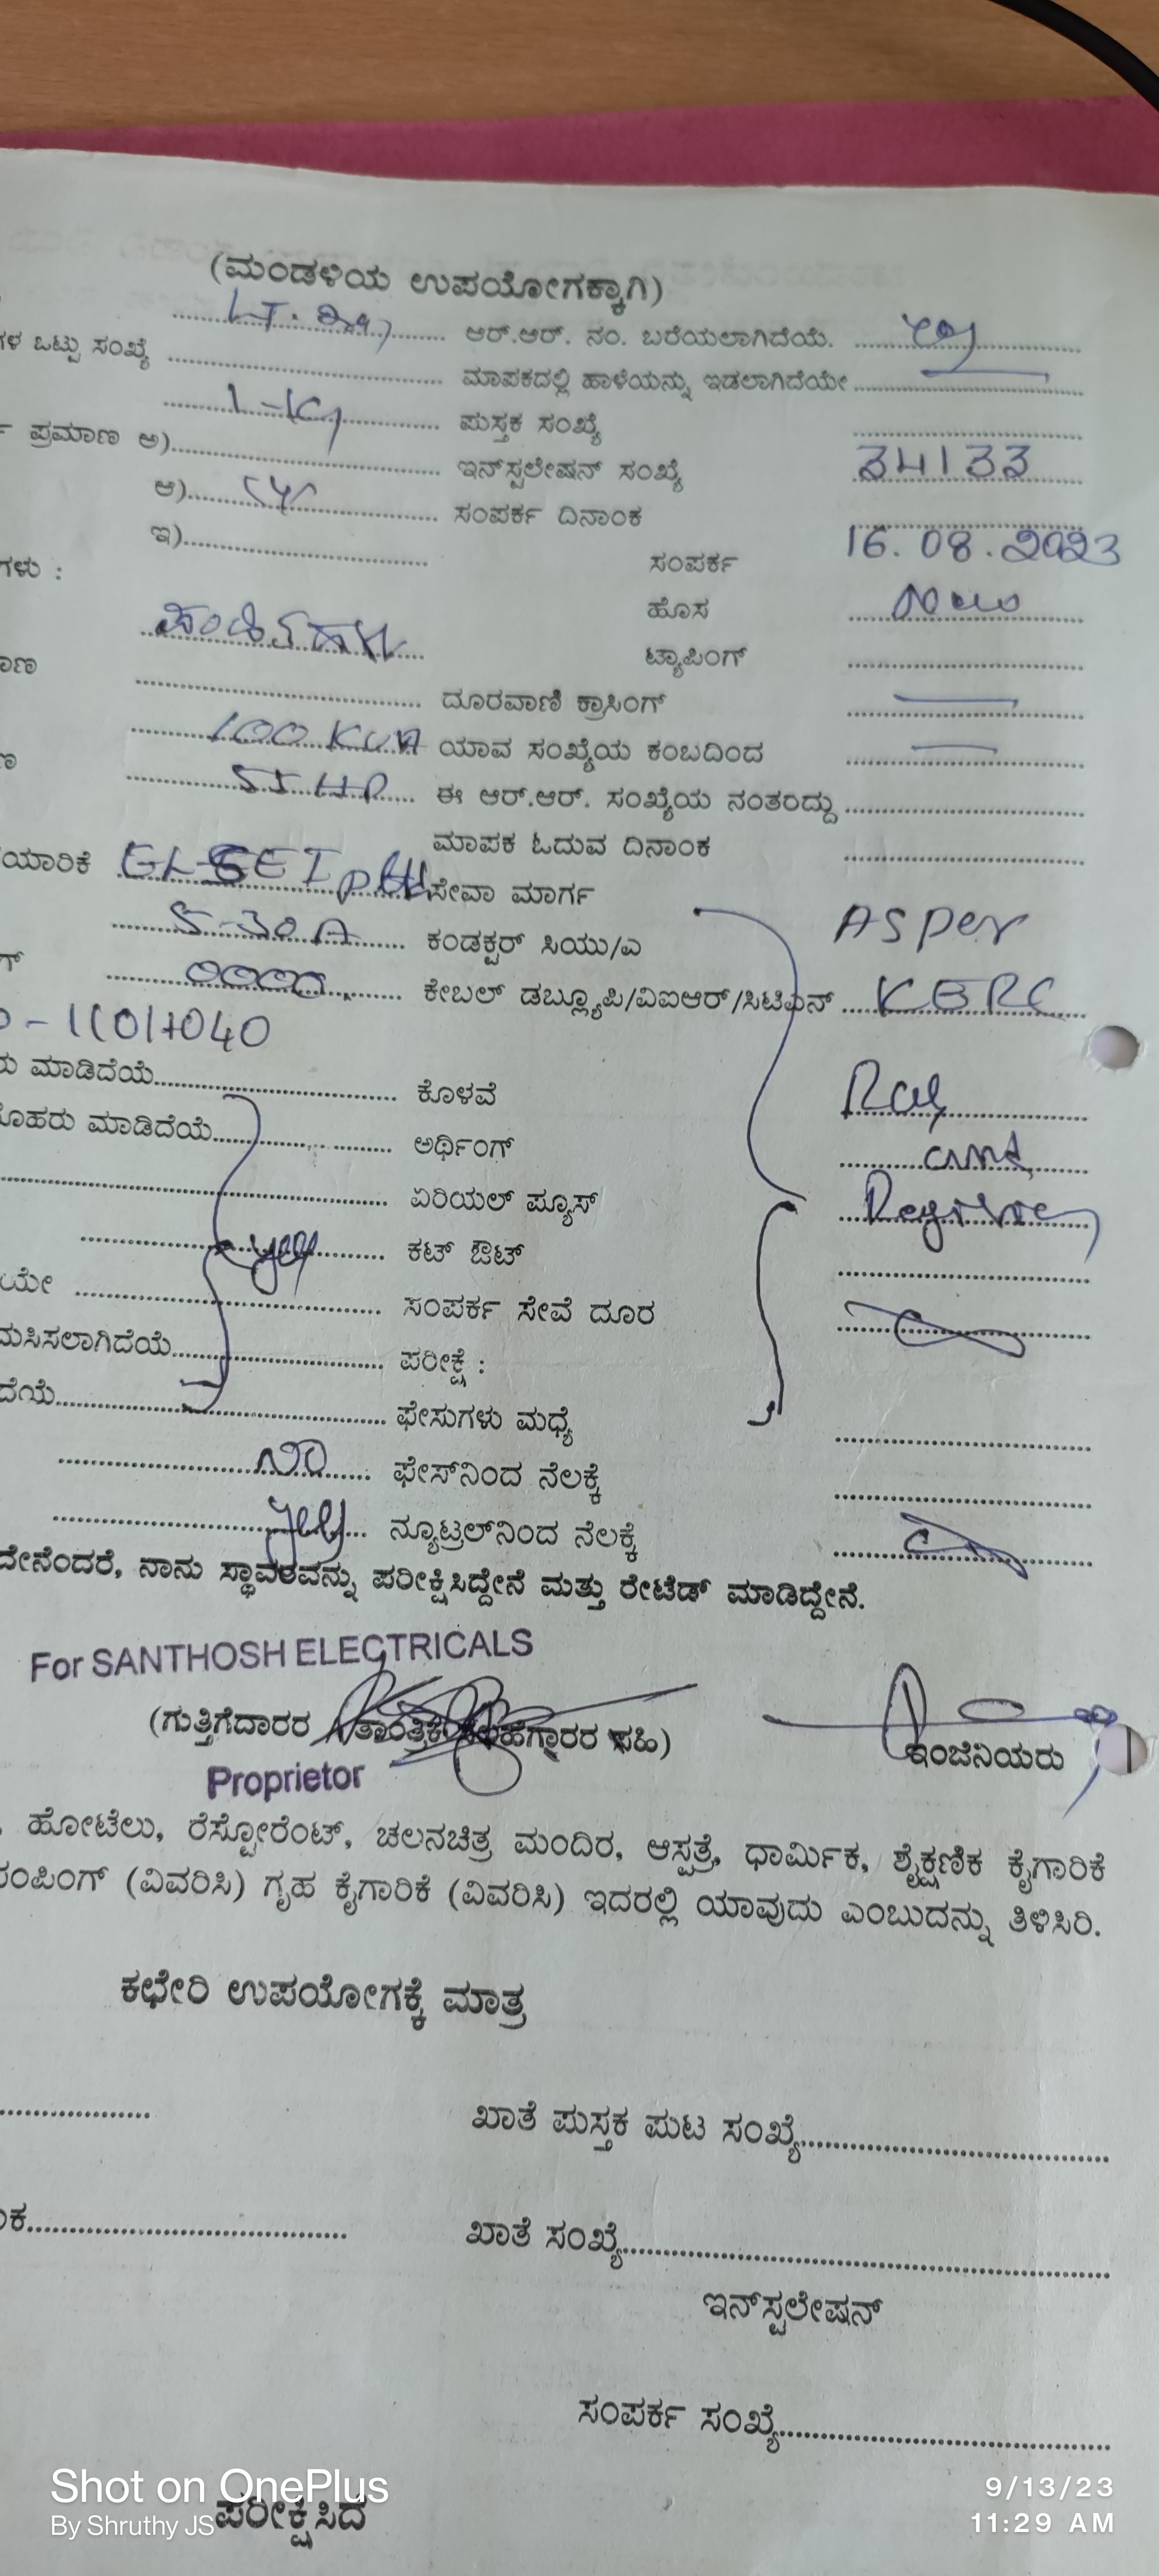 (ಮಂಡಳಿಯ ಉಪಯೋಗಕ್ಕಾಗಿ)
ಆರ್.ಆರ್. ನಂ. ಬರೆಯಲಾಗಿದೆಯೆ.
ಗಳ ಒಟ್ಟು ಸಂಖ್ಯೆ ಮಾಪಕದಲ್ಲಿ ಹಾಳೆಯನ್ನು ಇಡಲಾಗಿದೆಯೇ
ಪುಸ್ತಕ ಸಂಖ್ಯೆ
ಪ್ರಮಾಣ ಅ) ಇನ್‌ಸ್ಟಲೇಷನ್ ಸಂಖ್ಯೆ 34133
ಆ) ಸಂಪರ್ಕ ದಿನಾಂಕ 16.08.2023
ಇ) ಸಂಪರ್ಕ
ಗಳು : ಹೊಸ New
ಟ್ಯಾಪಿಂಗ್
ದೂರವಾಣಿ ಕ್ರಾಸಿಂಗ್
100 KVA ಯಾವ ಸಂಖ್ಯೆಯ ಕಂಬದಿಂದ
ಈ ಆರ್.ಆರ್. ಸಂಖ್ಯೆಯ ನಂತರದ್ದು
ಮಾಪಕ ಓದುವ ದಿನಾಂಕ
ಯಾರಿಕೆ ಸೇವಾ ಮಾರ್ಗ
5-30A ಕಂಡಕ್ಟರ್ ಸಿಯು/ಎ As per
0000 ಕೇಬಲ್ ಡಬ್ಲ್ಯೂಪಿ/ವಿಐಆರ್/ಸಿಟಿಎಸ್ KERC
ಮಾಡಿದೆಯೆ ಕೊಳವೆ
ೊಹರು ಮಾಡಿದೆಯೆ ಅರ್ಥಿಂಗ್ and
ಏರಿಯಲ್ ಪ್ಯೂಸ್
yes ಕಟ್ ಔಟ್
ಯೇ ಸಂಪರ್ಕ ಸೇವೆ ದೂರ
ಮಸಿಸಲಾಗಿದೆಯೆ ಪರೀಕ್ಷೆ :
ದೆಯೆ ಫೇಸುಗಳು ಮಧ್ಯೆ
NO ಫೇಸ್‌ನಿಂದ ನೆಲಕ್ಕೆ
yes ನ್ಯೂಟ್ರಲ್‌ನಿಂದ ನೆಲಕ್ಕೆ
ದೇನೆಂದರೆ, ನಾನು ಸ್ಥಾವರವನ್ನು ಪರೀಕ್ಷಿಸಿದ್ದೇನೆ ಮತ್ತು ರೇಟೆಡ್ ಮಾಡಿದ್ದೇನೆ.
For SANTHOSH ELECTRICALS
(ಗುತ್ತಿಗೆದಾರರ ತಾಂತ್ರಿಕ ಸಹಿ) ಇಂಜಿನಿಯರು
Proprietor
, ಹೋಟೆಲು, ರೆಸ್ಟೋರೆಂಟ್, ಚಲನಚಿತ್ರ ಮಂದಿರ, ಆಸ್ಪತ್ರೆ, ಧಾರ್ಮಿಕ, ಶೈಕ್ಷಣಿಕ ಕೈಗಾರಿಕೆ
ಪಂಪಿಂಗ್ (ವಿವರಿಸಿ) ಗೃಹ ಕೈಗಾರಿಕೆ (ವಿವರಿಸಿ) ಇದರಲ್ಲಿ ಯಾವುದು ಎಂಬುದನ್ನು ತಿಳಿಸಿರಿ.
ಕಛೇರಿ ಉಪಯೋಗಕ್ಕೆ ಮಾತ್ರ
ಖಾತೆ ಪುಸ್ತಕ ಪುಟ ಸಂಖ್ಯೆ
ಖಾತೆ ಸಂಖ್ಯೆ
ಇನ್‌ಸ್ಟಲೇಷನ್
ಸಂಪರ್ಕ ಸಂಖ್ಯೆ
ಪರೀಕ್ಷಿಸಿದ
Shot on OnePlus
By Shruthy JS
9/13/23
11:29 AM